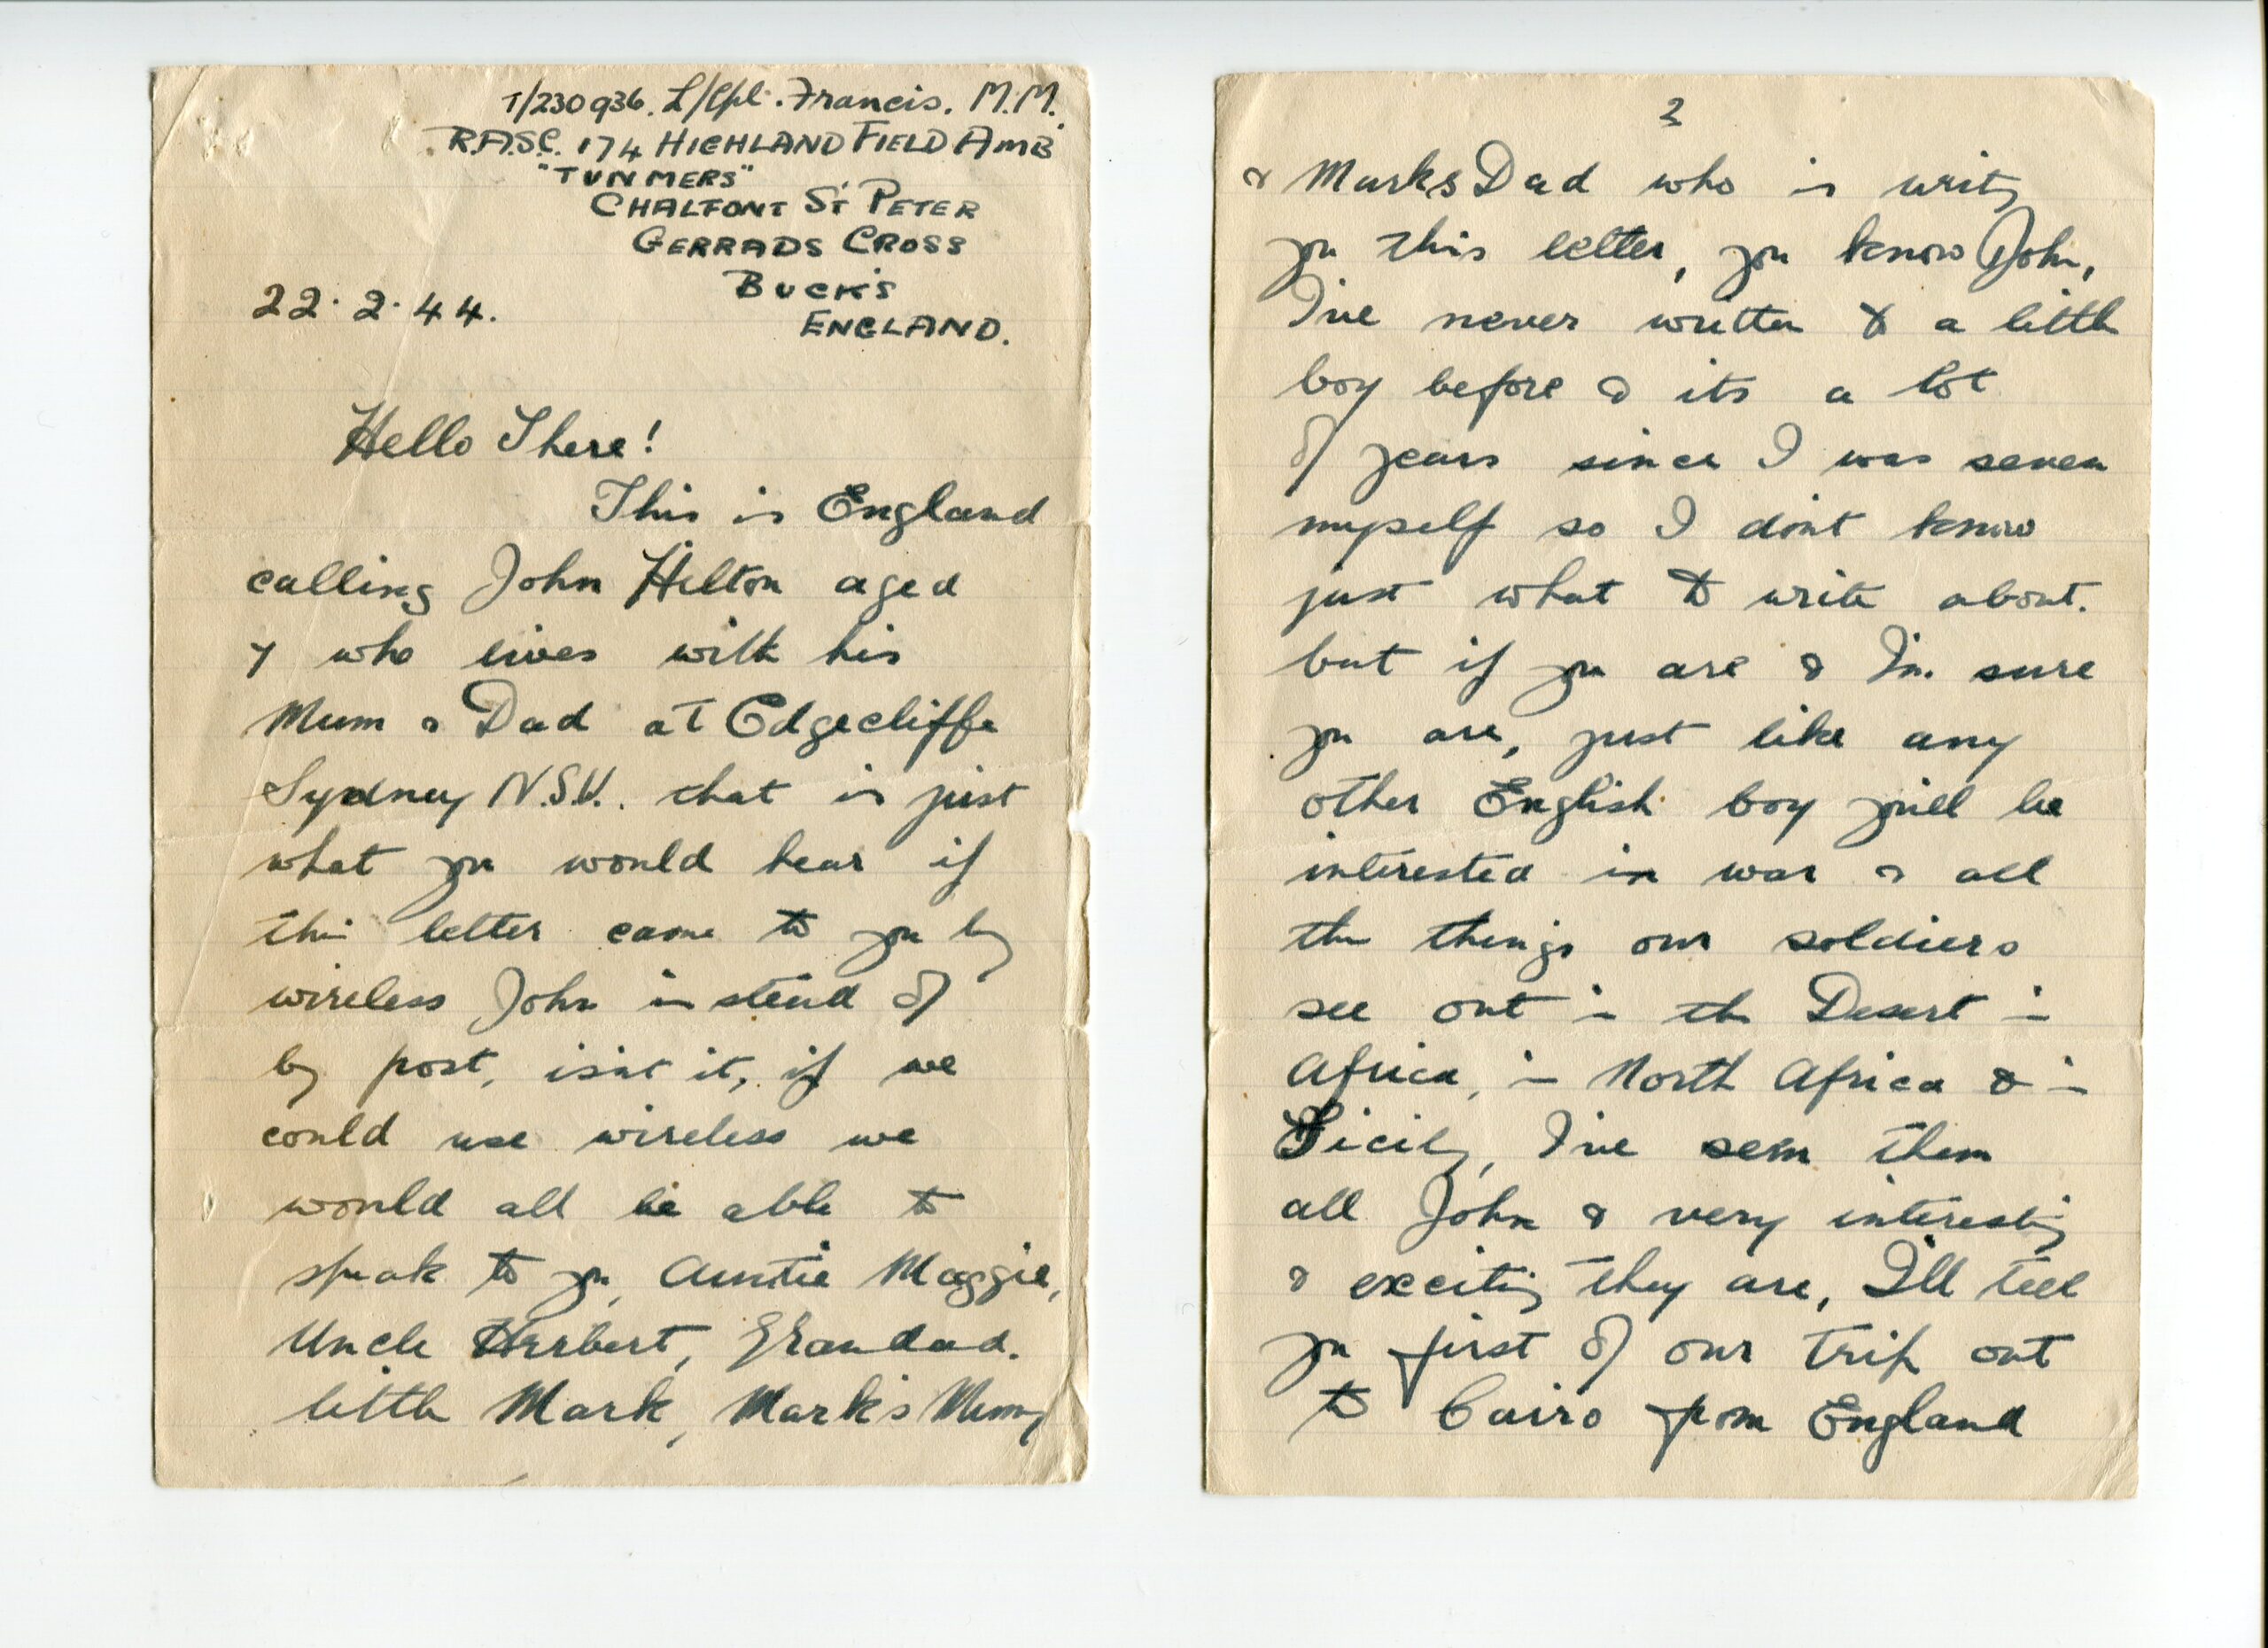 T/230936. L/Cpl. Francis. M.M.
R.A.S.C. 174 HIGHLAND FIELD AMB
"TUNMERS"
CHALFONT ST PETER
GERRADS CROSS
BUCK'S
ENGLAND.
22.2.44.
Hello There!
This is England
calling John Hilton aged
7 who lives with his
Mum & Dad at Edgecliffe
Sydney N.S.W. that is just
what you would hear if
this letter came to you by
wireless John instead of
by post, isint it, if we
could use wireless we
would all be able to
speak to you, Auntie Maggie,
Uncle Herbert, Grandad.
little Mark, Mark's Mummy
2
& Marks Dad who is writing
you this letter, you know John,
I've never written to a little
boy before & its a lot
of years since I was seven
myself so I dont know
just what to write about.
but if you are & I'm sure
you are, just like any
other English boy you'll be
interested in war & all
the things our soldiers
see out in the Desert in
Africa, in North Africa & in
Sicily, I've seen them
all John & very interesting
& exciting they are, I'll tell
you first of our trip out
to Cairo from England